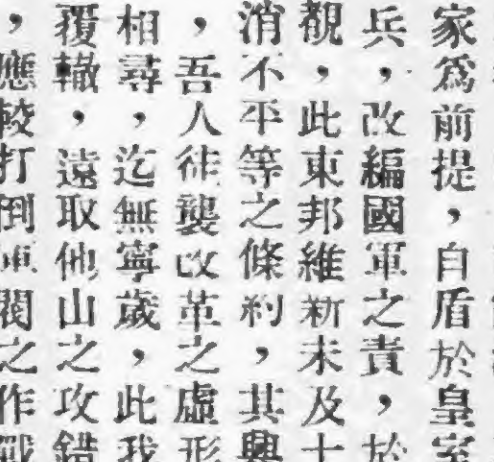 家爲前提，自盾於皇室
兵，改編國軍之責，於
觀，此東邦維新未及十
消不平等之條約，其興
，吾人徒襲改革之虛形
相尋，迄無寧歲，此我
覆轍，遠取他山之攻錯
，應較打倒軍閥之作戰